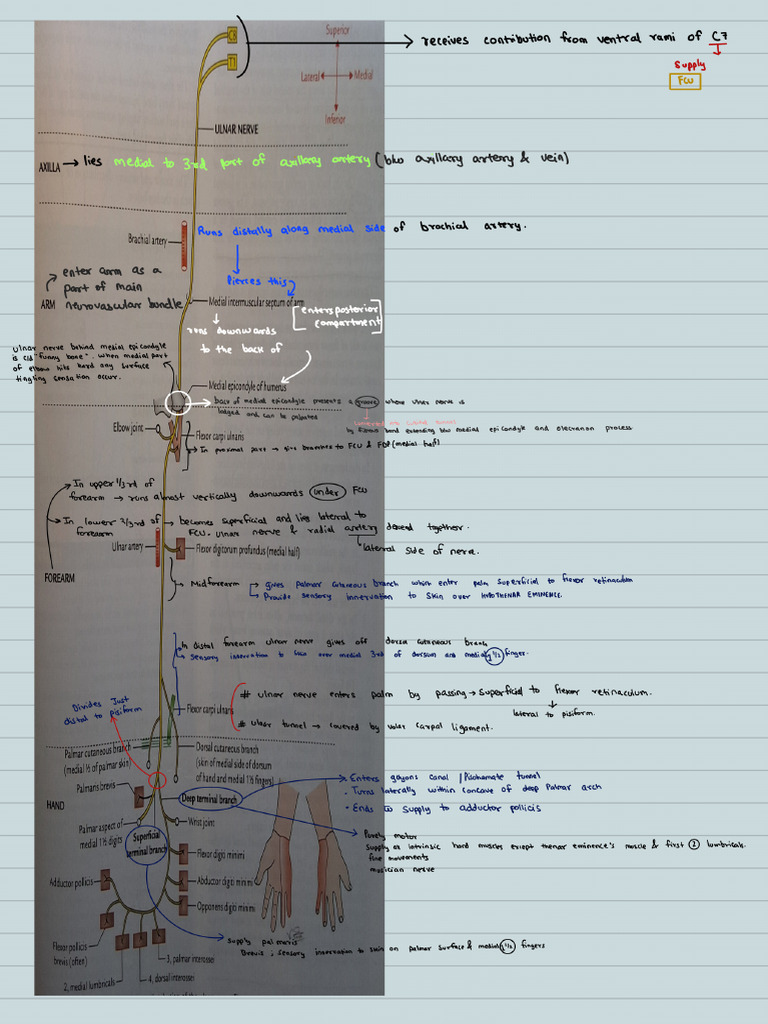 C8
T1
receives contribution from ventral rami of C7
Supply
FCU
Superior
Lateral
Medial
Inferior
ULNAR NERVE
AXILLA
lies medial to 3rd part of axillary artery (b/w axillary artery & vein)
Brachial artery
Runs distally along medial side of brachial artery.
Pierces this
enter arm as a
part of main
neurovascular bundle
ARM
Medial intermuscular septum of arm
enters posterior
compartment
runs downwards
to the back of
ulnar nerve behind medial epicondyle
is c/d "funny bone". when medial part
of elbow hits hard any surface
tingling sensation occur.
Medial epicondyle of humerus
back of medial epicondyle presents a groove where ulnar nerve is
lodged and can be palpated
converted into cubital tunnel
by fibrous band extending b/w medial epicondyle and olecranon process
Elbow joint
Flexor carpi ulnaris
In proximal part → give branches to FCU & FDP (medial half)
In upper 1/3 rd of
forearm → runs almost vertically downwards under FCU
In lower 2/3rd of → becomes superficial and lies lateral to
forearm
FCU. ulnar nerve & radial artery descend together.
lateral side of nerve.
Ulnar artery
Flexor digitorum profundus (medial half)
FOREARM
Midforearm
gives palmar cutaneous branch which enter palm superficial to flexor retinaculum
Provide sensory innervation to skin over HYPOTHENAR EMINENCE.
In distal forearm ulnar nerve gives off dorsal cutaneous branch
sensory innervation to skin over medial 3rd of dorsum and medial 1 1/2 finger.
Divides Just
distal to pisiform
Flexor carpi ulnaris
# ulnar nerve enters palm by passing → superficial to flexor retinaculum.
lateral to pisiform.
# ulnar tunnel → covered by volar carpal ligament.
Palmar cutaneous branch
(medial ⅓ of palmar skin)
Dorsal cutaneous branch
(skin of medial side of dorsum
of hand and medial 1½ fingers)
Palmaris brevis
HAND
Deep terminal branch
Enters guyons canal / Pisohamate tunnel
Turns laterally within concave of deep Palmar arch
Ends to supply to adductor pollicis
Palmar aspect of
medial 1½ digits
Wrist joint
Superficial
terminal branch
Purely motor
Supply all intrinsic hand muscles except thenar eminence's muscle & first 2 lumbricals.
fine movements
musician nerve
Flexor digiti minimi
Adductor pollicis
Abductor digiti minimi
Opponens digiti minimi
Flexor pollicis
brevis (often)
supply palmaris
Brevis ; sensory innervation to skin on palmar surface & medial 1 1/2 fingers
3, palmar interossei
4, dorsal interossei
2, medial lumbricals